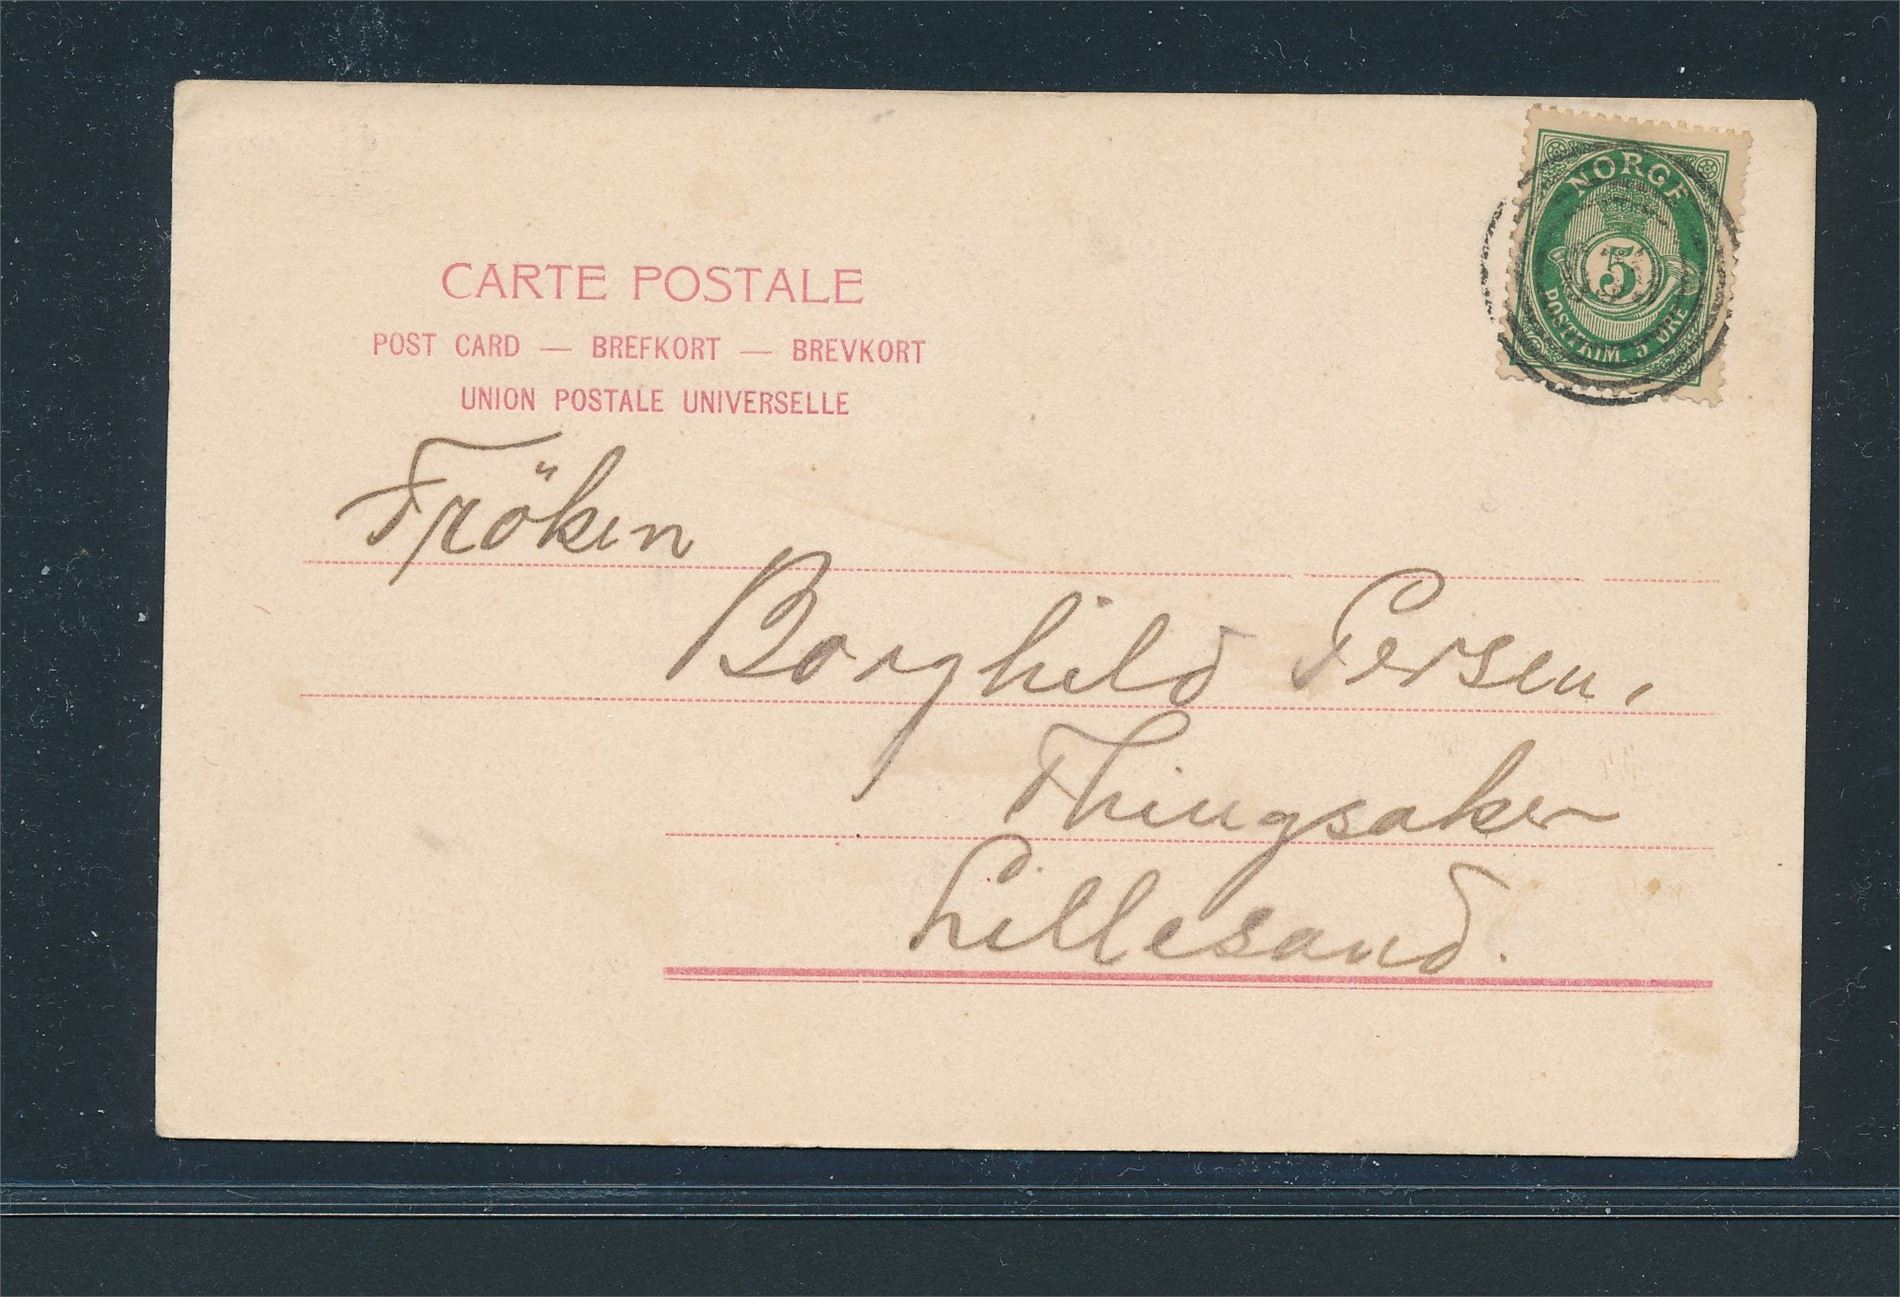 NORGE
5
POSTFRIM. 5 ØRE
CARTE POSTALE
POST CARD — BREFKORT — BREVKORT
UNION POSTALE UNIVERSELLE
Fröken
Borghild Persen,
Thingsaker
Lillesand.